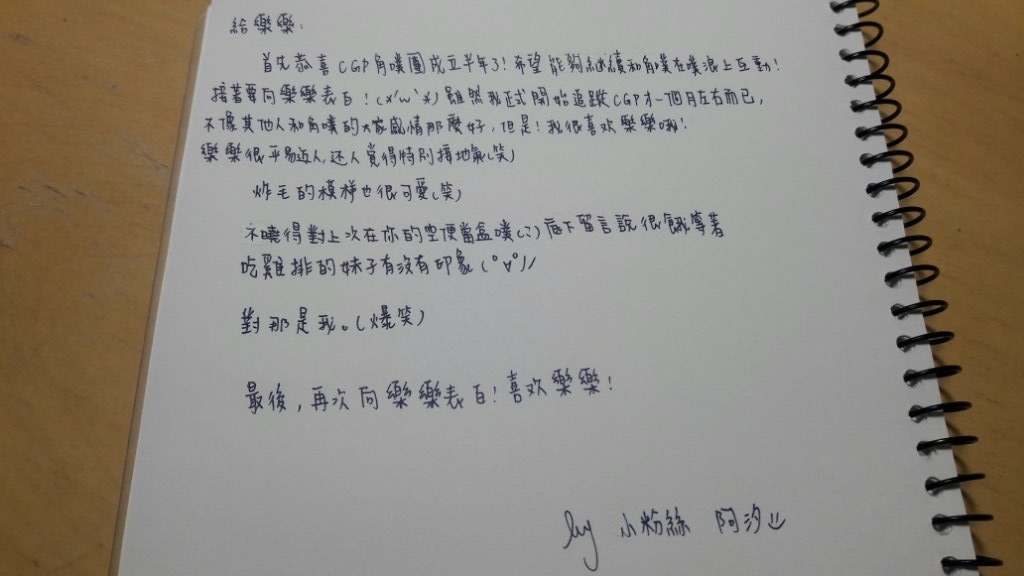 給樂樂:
首先恭喜CGP角噗團成立半年了!希望能夠繼續和角噗在噗浪上互動!
接著要向樂樂表白!(*'w'*)雖然我正式開始追蹤CGP才一個月左右而已,
不像其他人和角噗的大家感情那麼好,但是!我很喜欢樂樂哦!
樂樂很平易近人,还人覺得特別接地氣(笑)
炸毛的模樣也很可愛(笑)
不曉得對上次在你的空便當盒噗(?)底下留言說很餓等著
吃雞排的妹子有沒有印象(°∀°)/
對那是我。(爆笑)
最後,再次向樂樂表白!喜欢樂樂!
by 小粉絲 阿汐